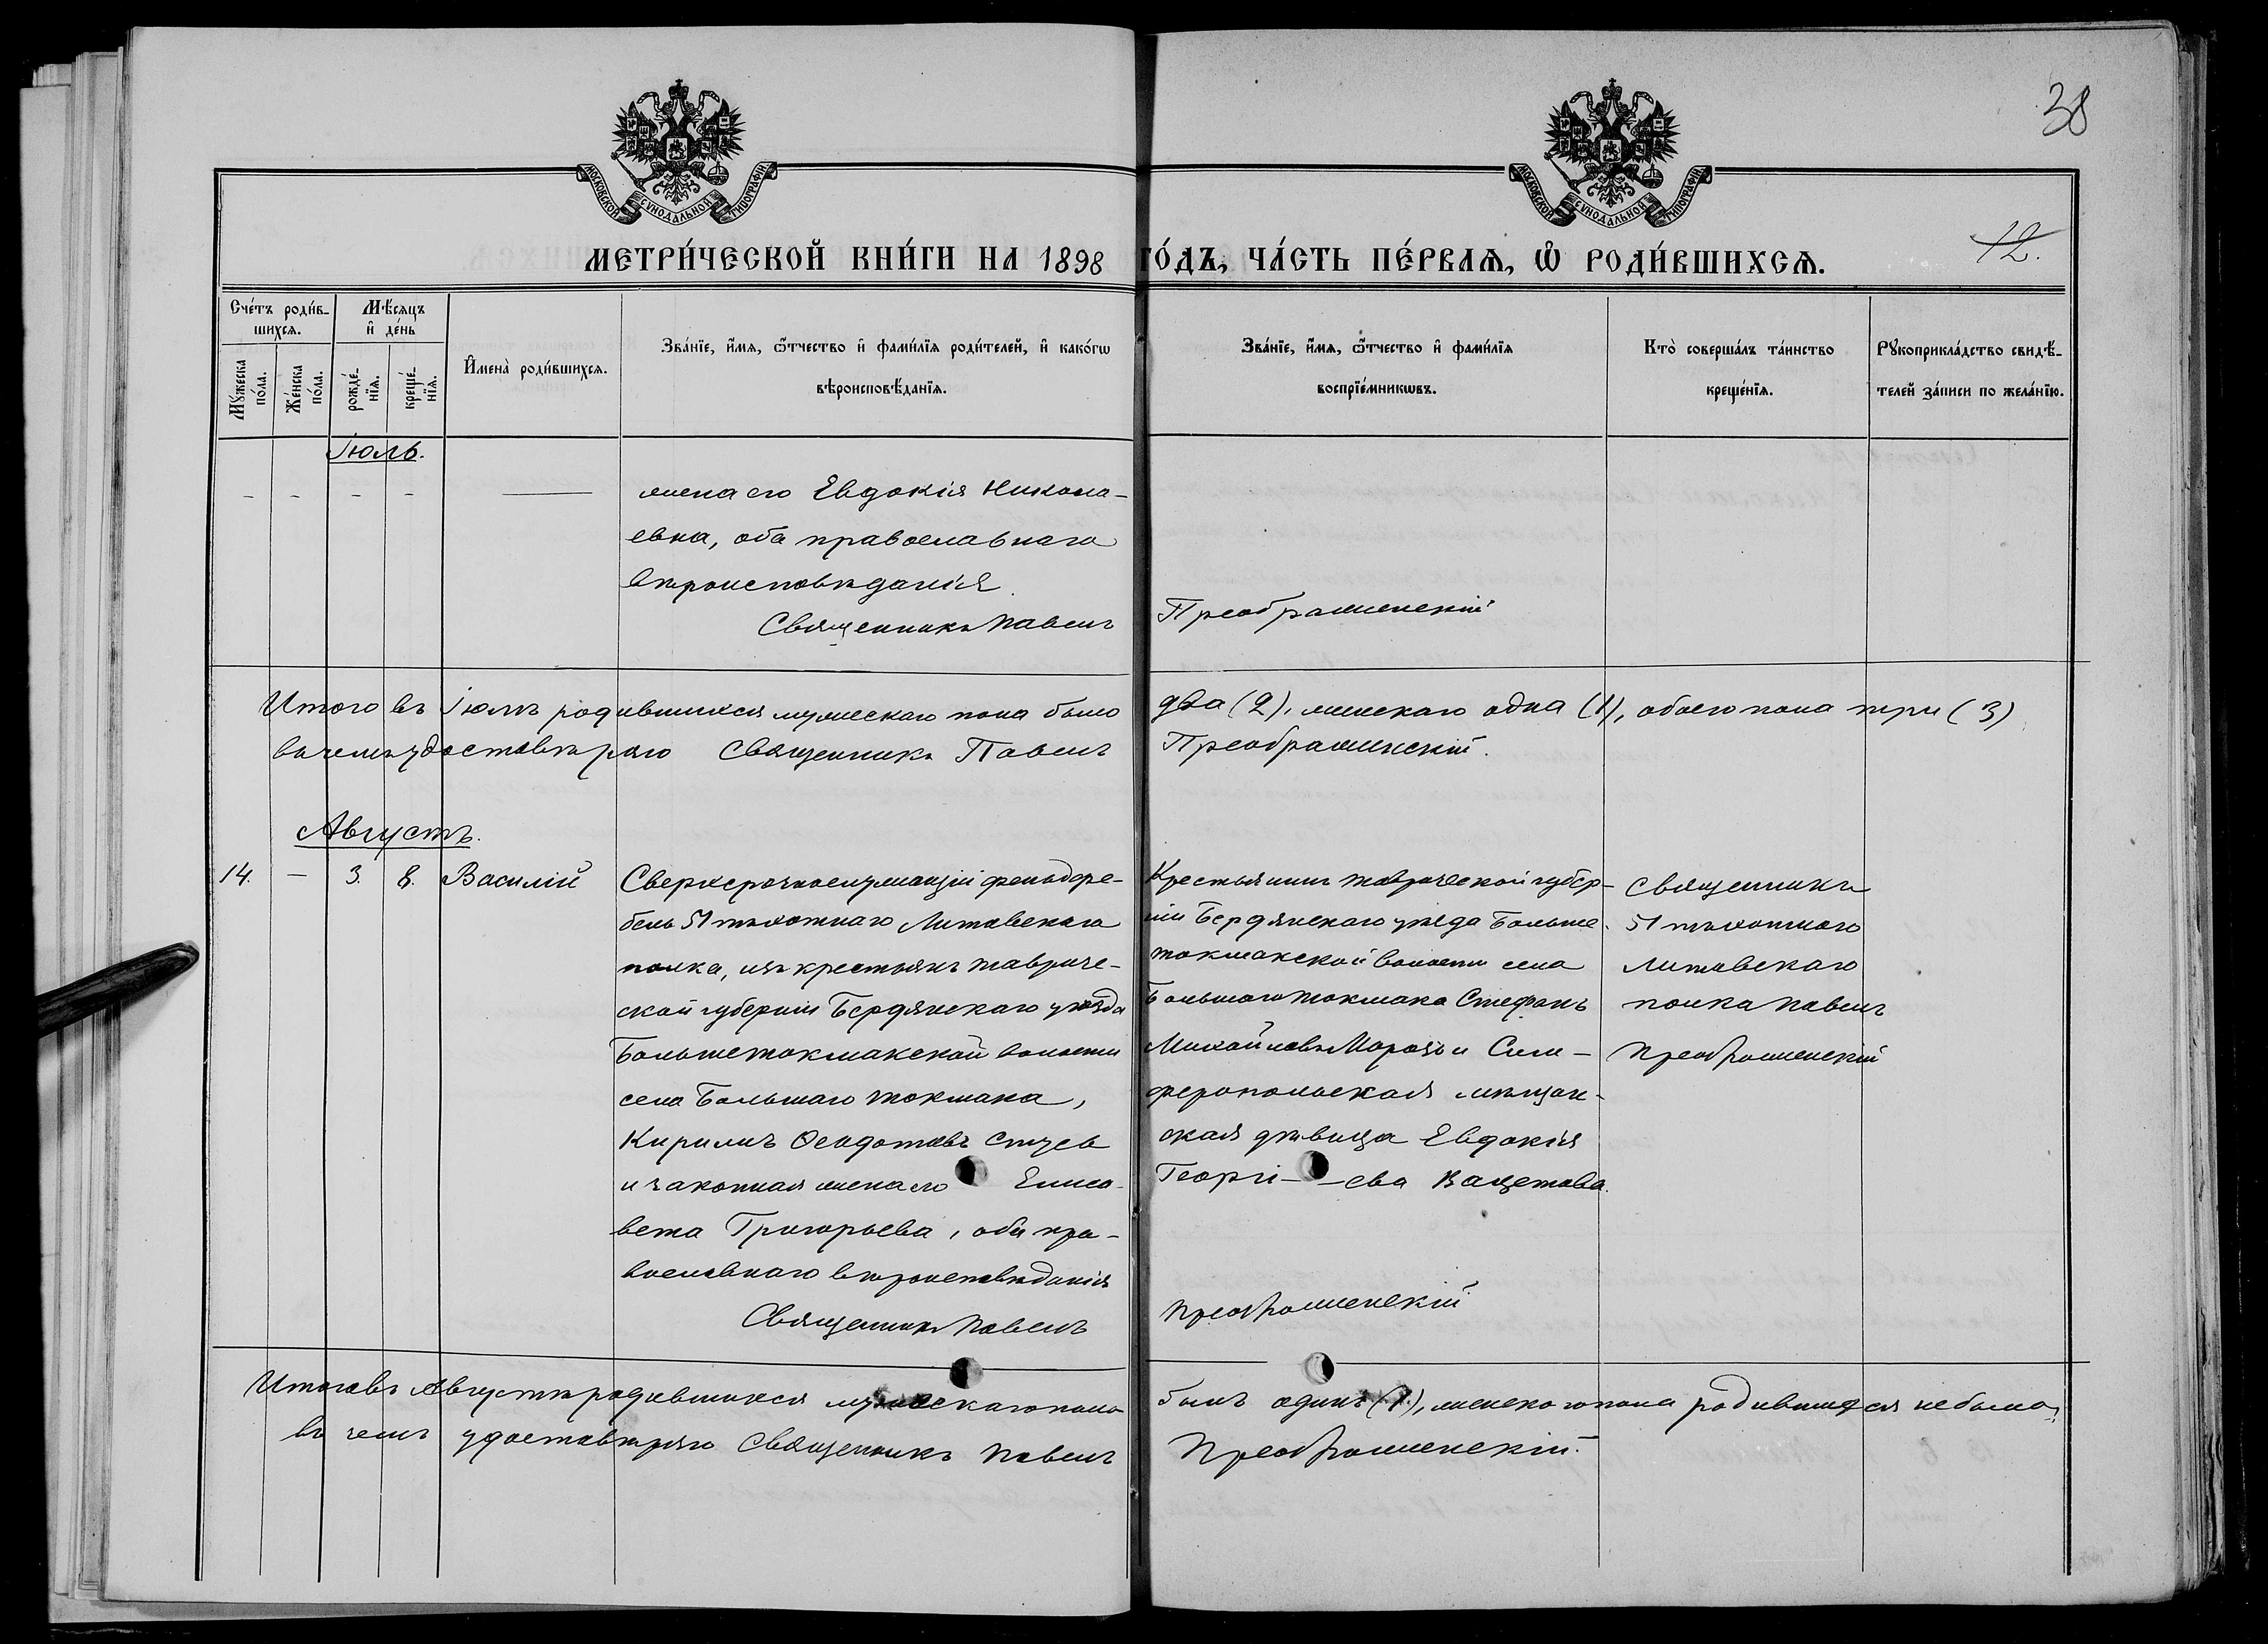 38
МОСКОВСКОЙ СѴНОДАЛЬНОЙ ТИПОГРАФІИ
МОСКОВСКОЙ СѴНОДАЛЬНОЙ ТИПОГРАФІИ
12.
МЕТРИ́ЧЕСКОЙ КНИ́ГИ НА 1898 ГО́ДЪ, ЧА́СТЬ ПЕ́РВАѦ, Ѡ҆ РОДИ́ВШИХСѦ.
Сче́тъ роди́в-
шихсѧ.
Мꙋ́жеска по́ла.
Же́нска по́ла.
Мѣ́сѧцъ
и҆ де́нь
рожде́-нїѧ.
креще́-нїѧ.
И҆мена̀ роди́вшихсѧ.
Зва́нїе, и҆́мѧ, ѻ҆́тчество и҆ фами́лїѧ роди́телей, и҆ како́гѡ
вѣроисповѣ́данїѧ.
Зва́нїе, и҆́мѧ, ѻ҆́тчество и҆ фами́лїѧ
воспрїе́мникѡвъ.
Кто̀ соверша́лъ та́инство
креще́нїѧ.
Рꙋкоприкла́дство свидѣ́-
телей за́писи по жела́нїю.
Іюль.
- - - - — жена его Евдокія Никола-
евна, оба православнаго
вѣроисповѣданія.
Священникъ Павелъ Преображенскій
Итого въ Іюлѣ родившихся мужескаго пола было два (2), женскаго одна (1), обоего пола три (3)
въ чемъ удостовѣряю Священникъ Павелъ Преображенскій.
Августъ.
14. — 3. 8. Василій
Сверхсрочнослужащій фельдфе-
бель 51 пѣхотнаго Литовскаго
полка, изъ крестьянъ Тавриче-
ской губерніи Бердянскаго уѣзда
Большетокмакской волости
села Большаго Токмака,
Кириллъ Ѳеодотовъ
и законная жена его Елиса-
вета Григорьева, оба пра-
вославнаго вѣроисповѣданія
Священникъ Павелъ Преображенскій
Крестьянинъ Таврической губер-
ніи Бердянскаго уѣзда Больше-
токмакской волости села
Большаго Токмака Стефанъ
Михайловъ Морозъ и Сим-
феропольская мѣщан-
ская дѣвица Евдокія
Георгі- -ева
Священникъ
51 пѣхотнаго
Литовскаго
полка Павелъ
Преображенскій
Итого въ Августѣ родившихся мужескаго пола былъ одинъ (1), женскаго пола родившихся не было,
въ чемъ удостовѣряю Священникъ Павелъ Преображенскій.